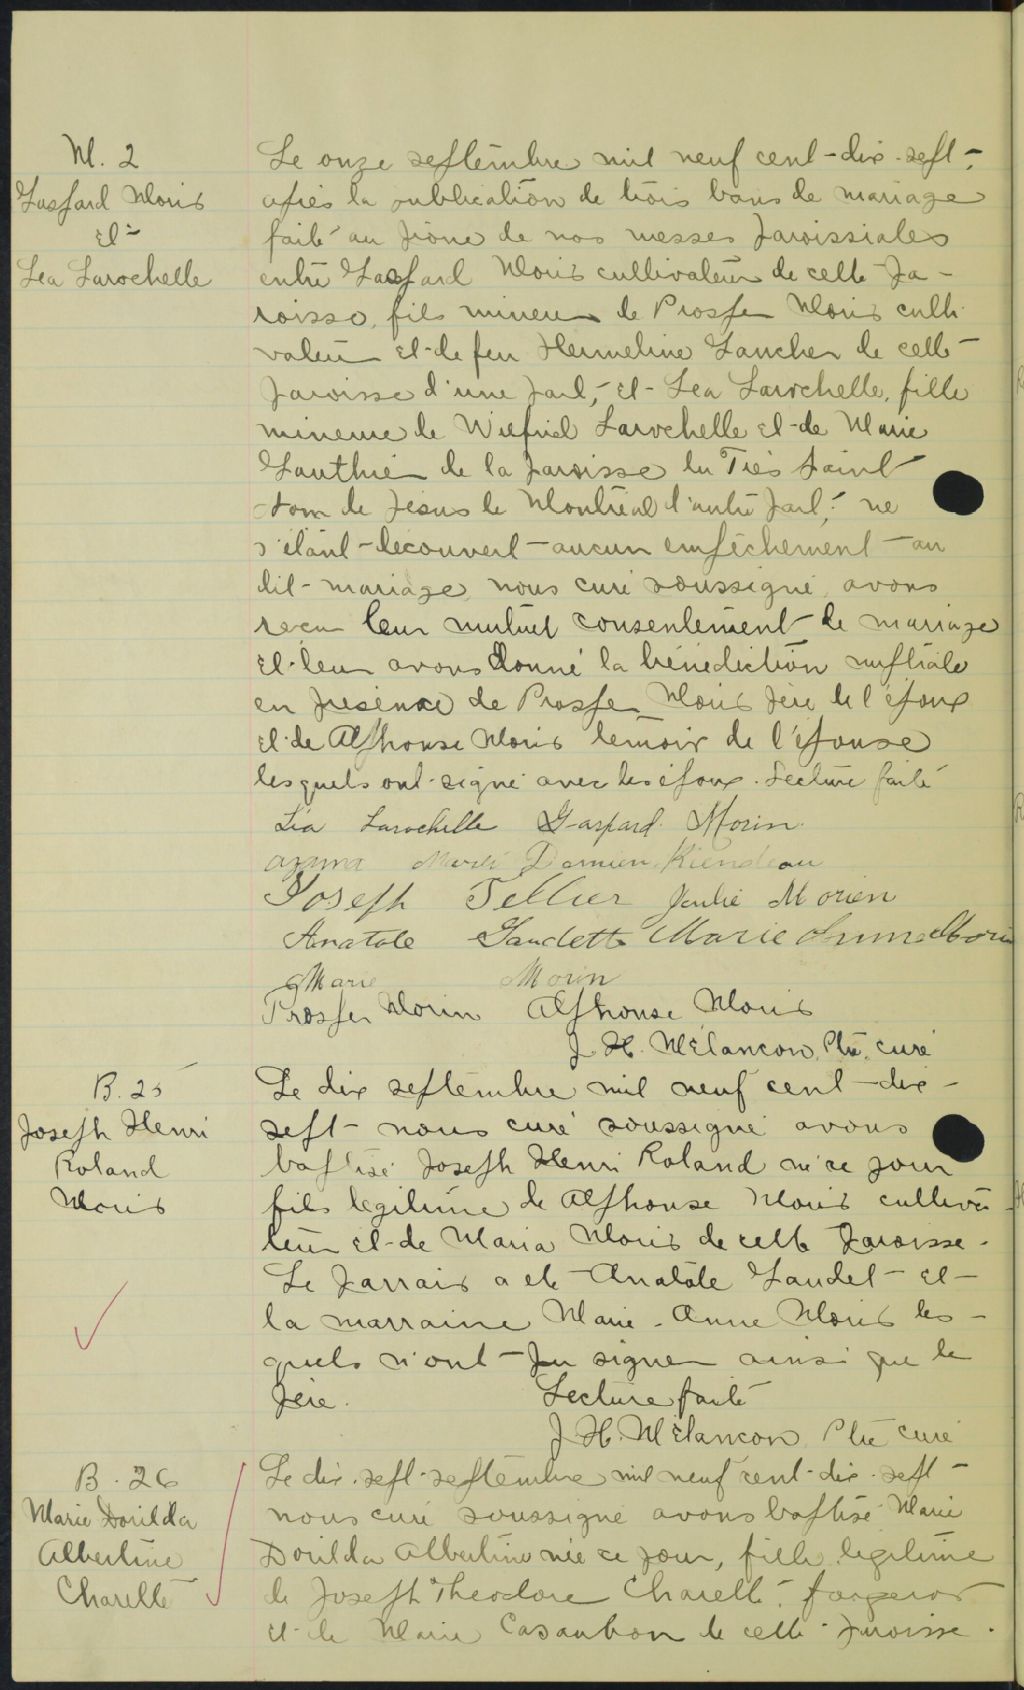 M. 2
Gaspard Morin
et
Léa Larochelle
Le onze septembre mil neuf cent-dix-sept
après la publication de trois bans de mariage
faite au prône de nos messes paroissiales
entre Gaspard Morin cultivateur de cette pa-
roisse, fils mineur de Prosper Morin culti
vateur et de feu Hermeline Faucher de cette
paroisse d'une part, et Léa Larochelle, fille
mineure de Wilfrid Larochelle et de Marie
Gauthier de la paroisse du Très Saint
Nom de Jésus de Montréal d'autre part; ne
s'étant découvert aucun empêchement au
dit mariage, nous curé soussigné, avons
reçu leur mutuel consentement de mariage
et leur avons donné la bénédiction nuptiale
en présence de Prosper Morin père de l'époux
et de Alphonse Morin témoin de l'épouse
lesquels ont signé avec les époux. Lecture faite
Léa Larochelle Gaspard Morin
Damien Riendeau
Joseph Tellier Julie Morien
Anatole Gaudette Marie Anna Morin
Marie Morin
Prosper Morin Alphonse Morin
J. H. Mélancon, Ptre, curé
B. 25
Joseph Henri
Roland
Morin
Le dix septembre mil neuf cent-dix-
sept nous curé soussigné avons
baptisé Joseph Henri Roland né ce jour
fils légitime de Alphonse Morin cultiva
teur et de Maria Morin de cette paroisse.
Le parrain a été Anatole Gaudet et
la marraine Marie-Anne Morin les-
quels n'ont pu signer ainsi que le
père. Lecture faite
J. H. Mélancon Ptre curé
B. 26
Marie Dorilda
Albertine
Charette
Le dix-sept septembre mil neuf cent-dix-sept
nous curé soussigné avons baptisé Marie
Dorilda Albertine née ce jour, fille légitime
de Joseph Théodore Charette, forgeron
et de Marie Casaubon de cette paroisse.